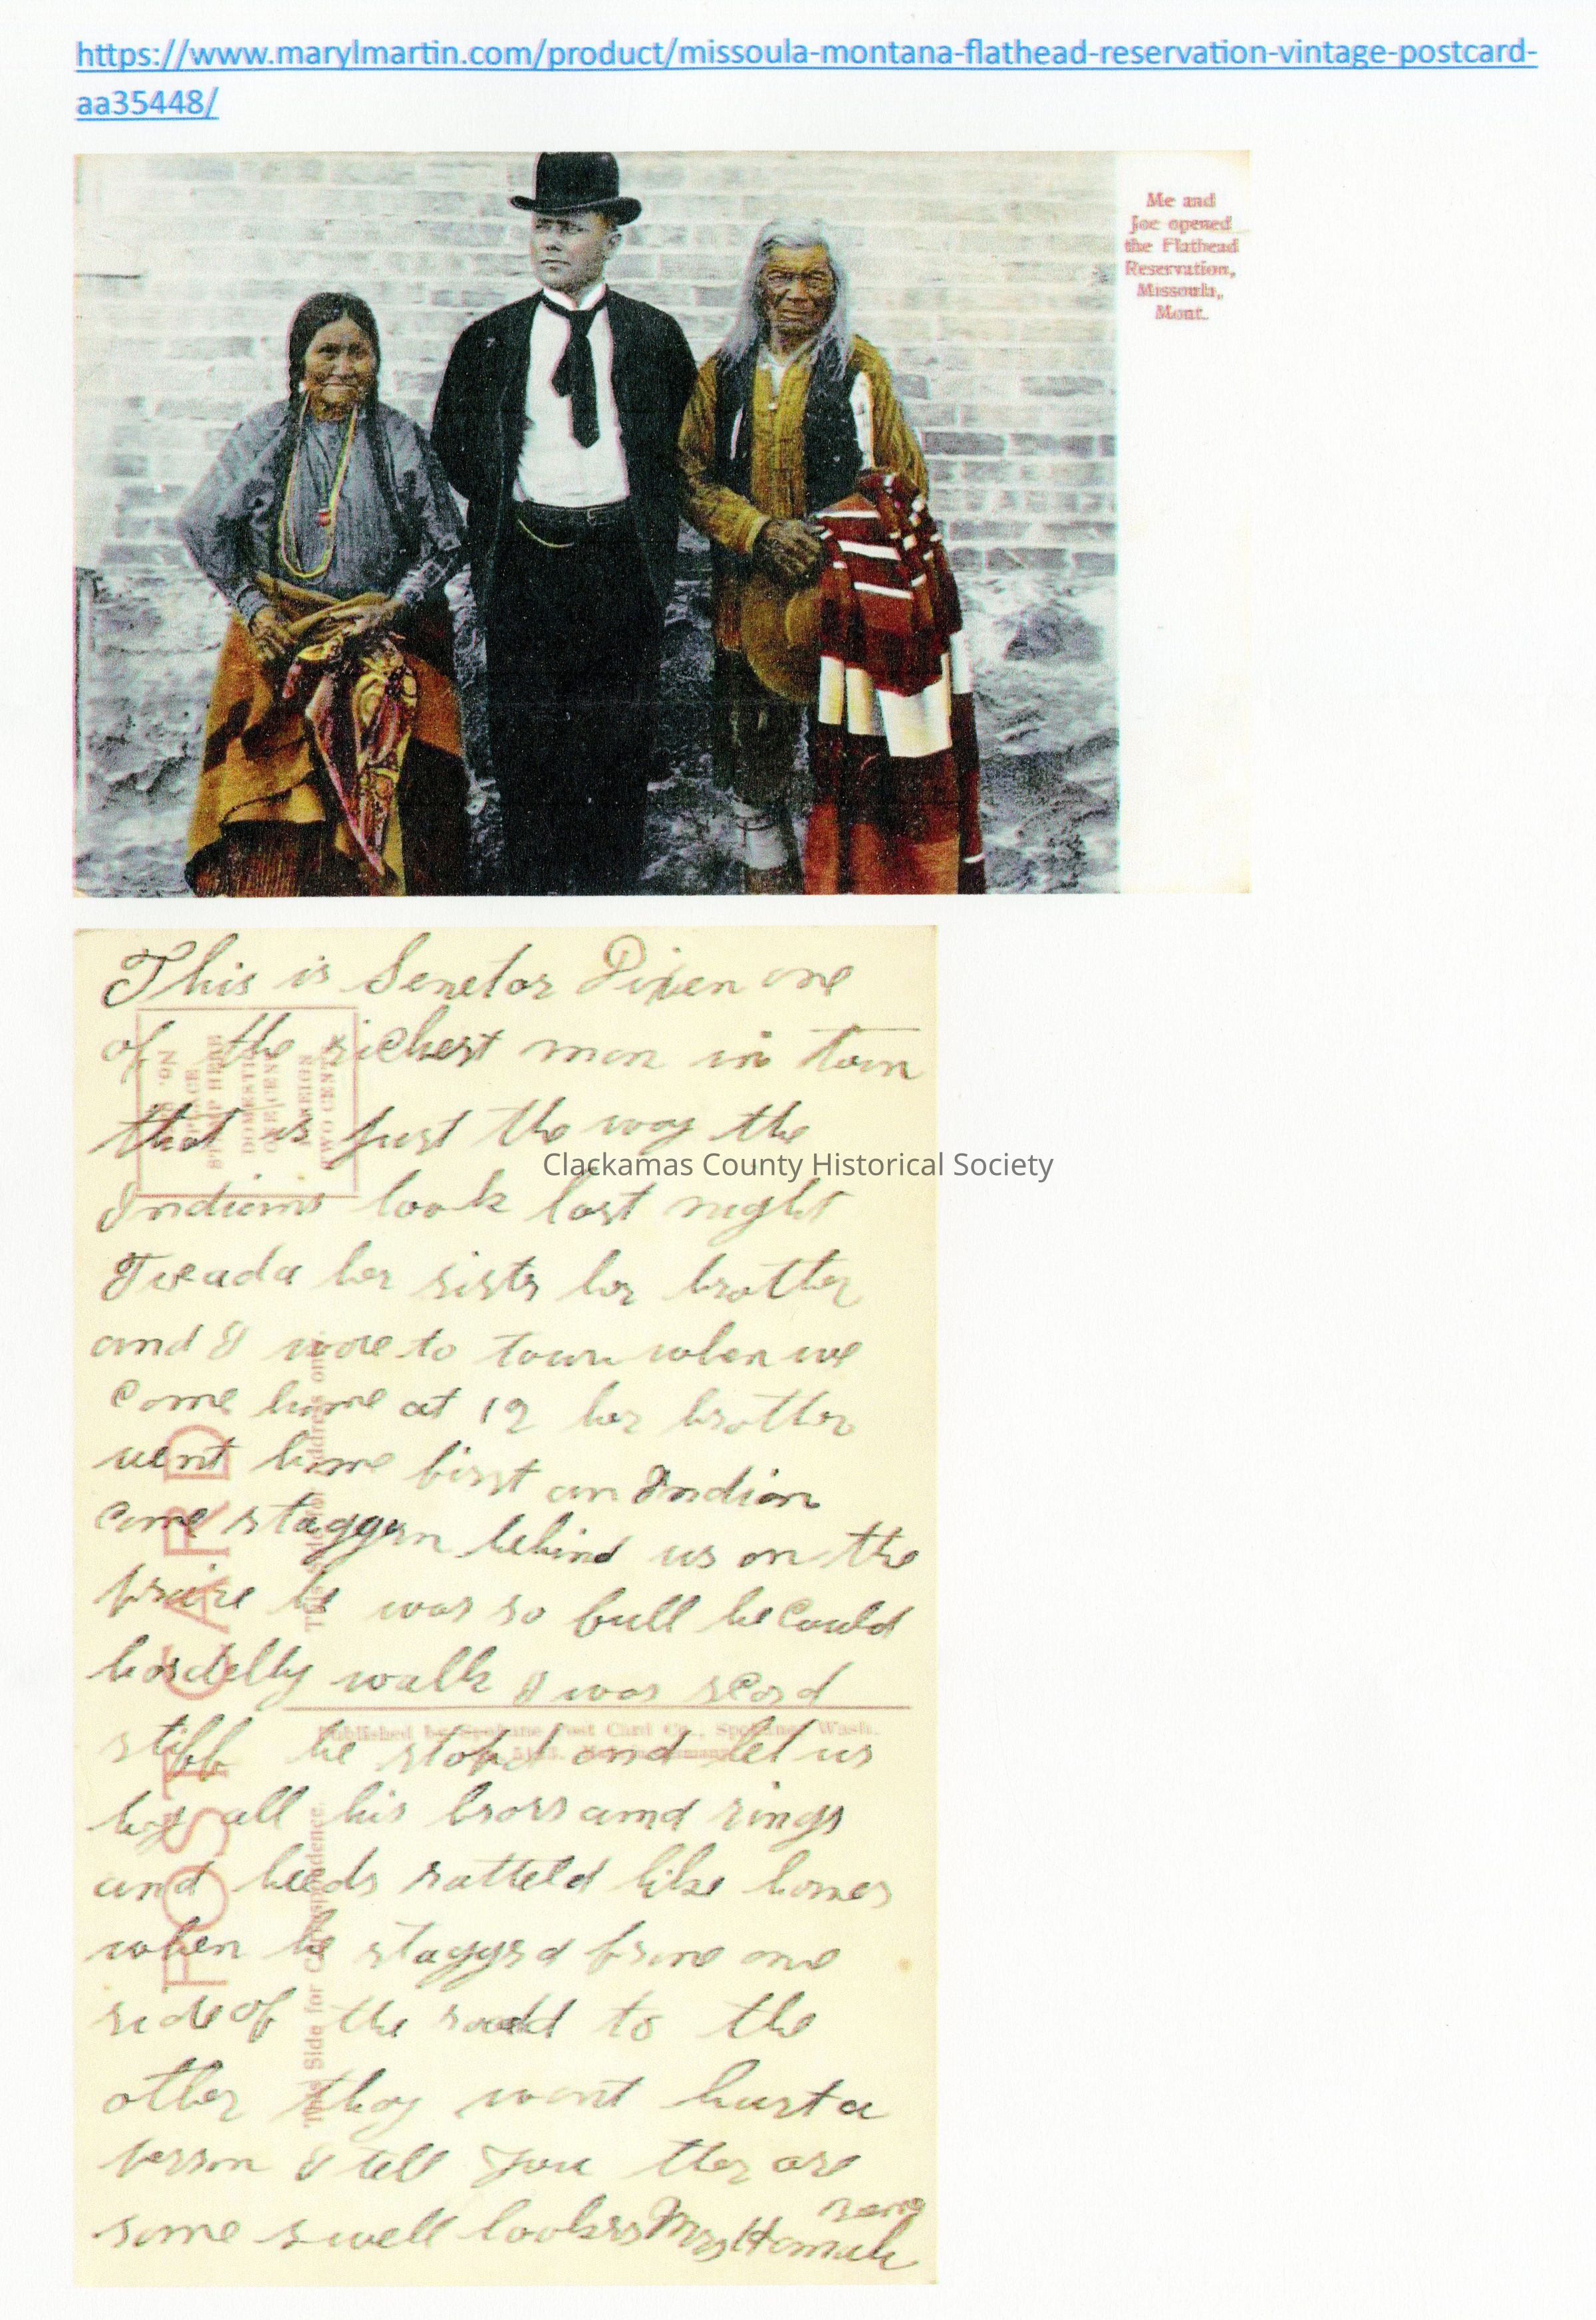 https://www.marylmartin.com/product/missoula-montana-flathead-reservation-vintage-postcard-
aa35448/
Me and
Joe opened
the Flathead
Reservation,
Missoula,
Mont.
This is Senetor Dixen one
of the richest man in town
that is just the way the
Indians look last night
her sister her brother
and I wore to town when we
come home at 12 her brother
went home first an Indian
come staggern behind us on the
praire he was so full he could
hardelly walk I was scard
stiff he stopd and let us
by all his brass and rings
and beeds ratteld like bones
when he staggrd frome one
side of the roadd to the
other they wont hurt a
person I tell you ther are
some swell lookers Mrs
POST CARD
This Side for Correspondence.
This side for address only.
PLACE
STAMP HERE
DOMESTIC
ONE CENT
FOREIGN
TWO CENTS
Published by Spokane Post Card Co., Spokane, Wash.
Clackamas County Historical Society